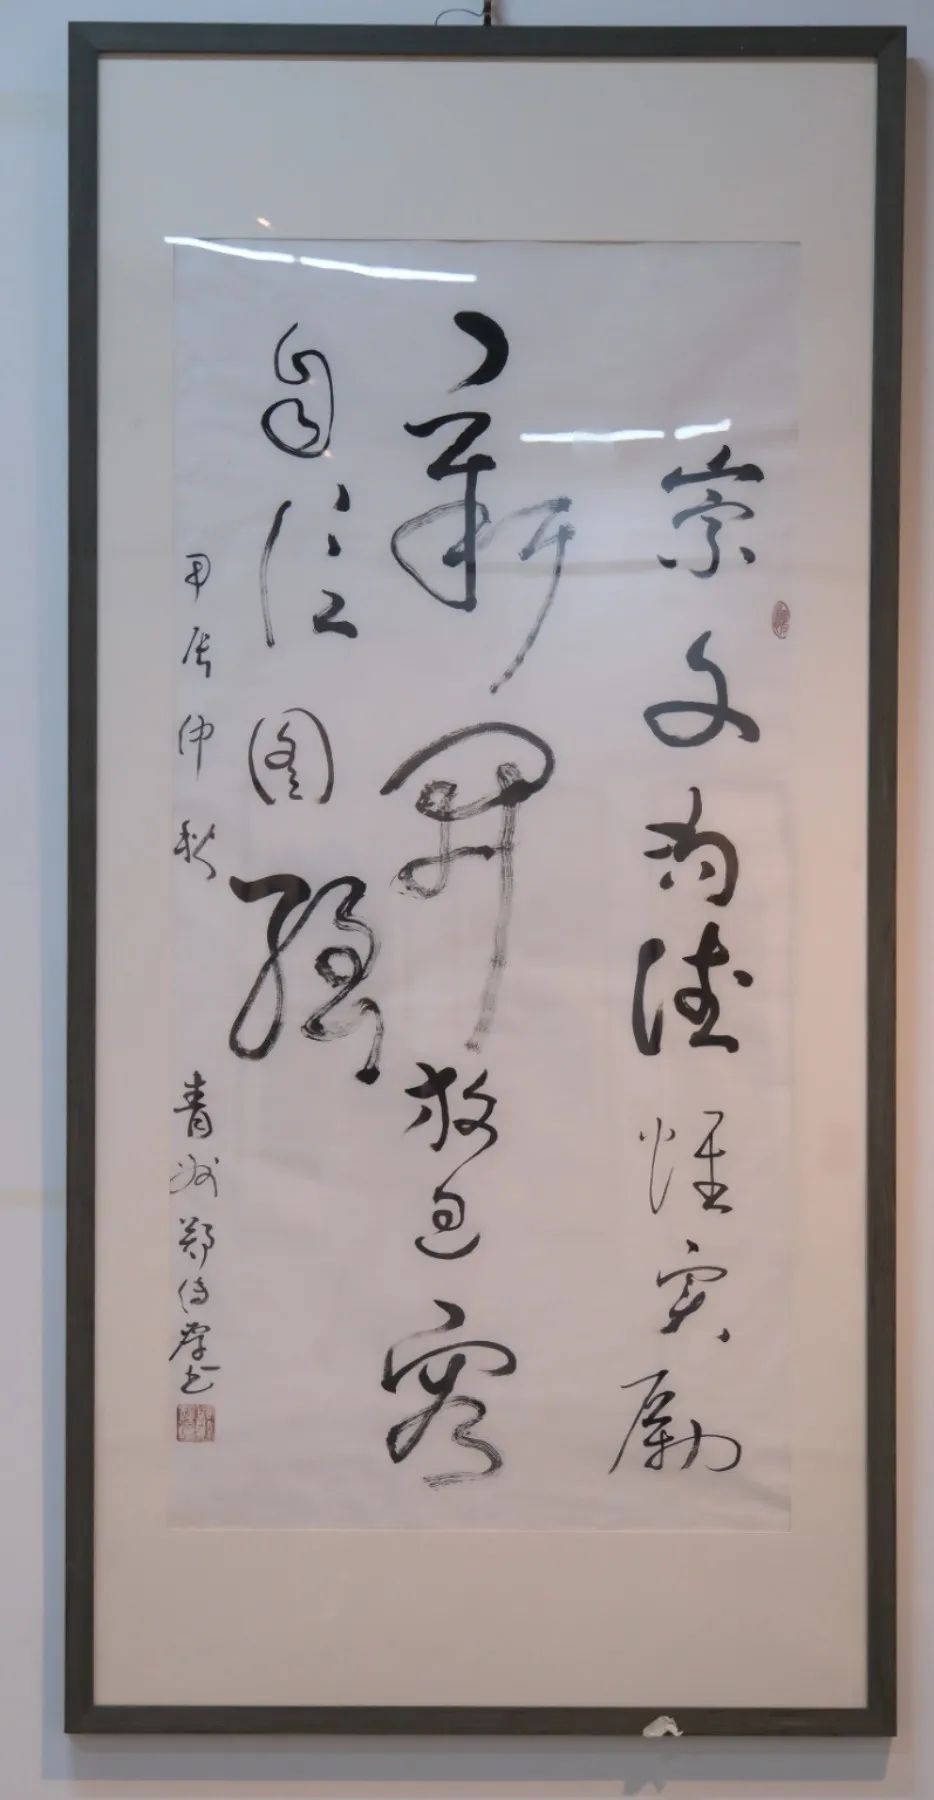 崇文尚德惟实励
新開放包容
自信图强
甲辰仲秋 青州郑传学书